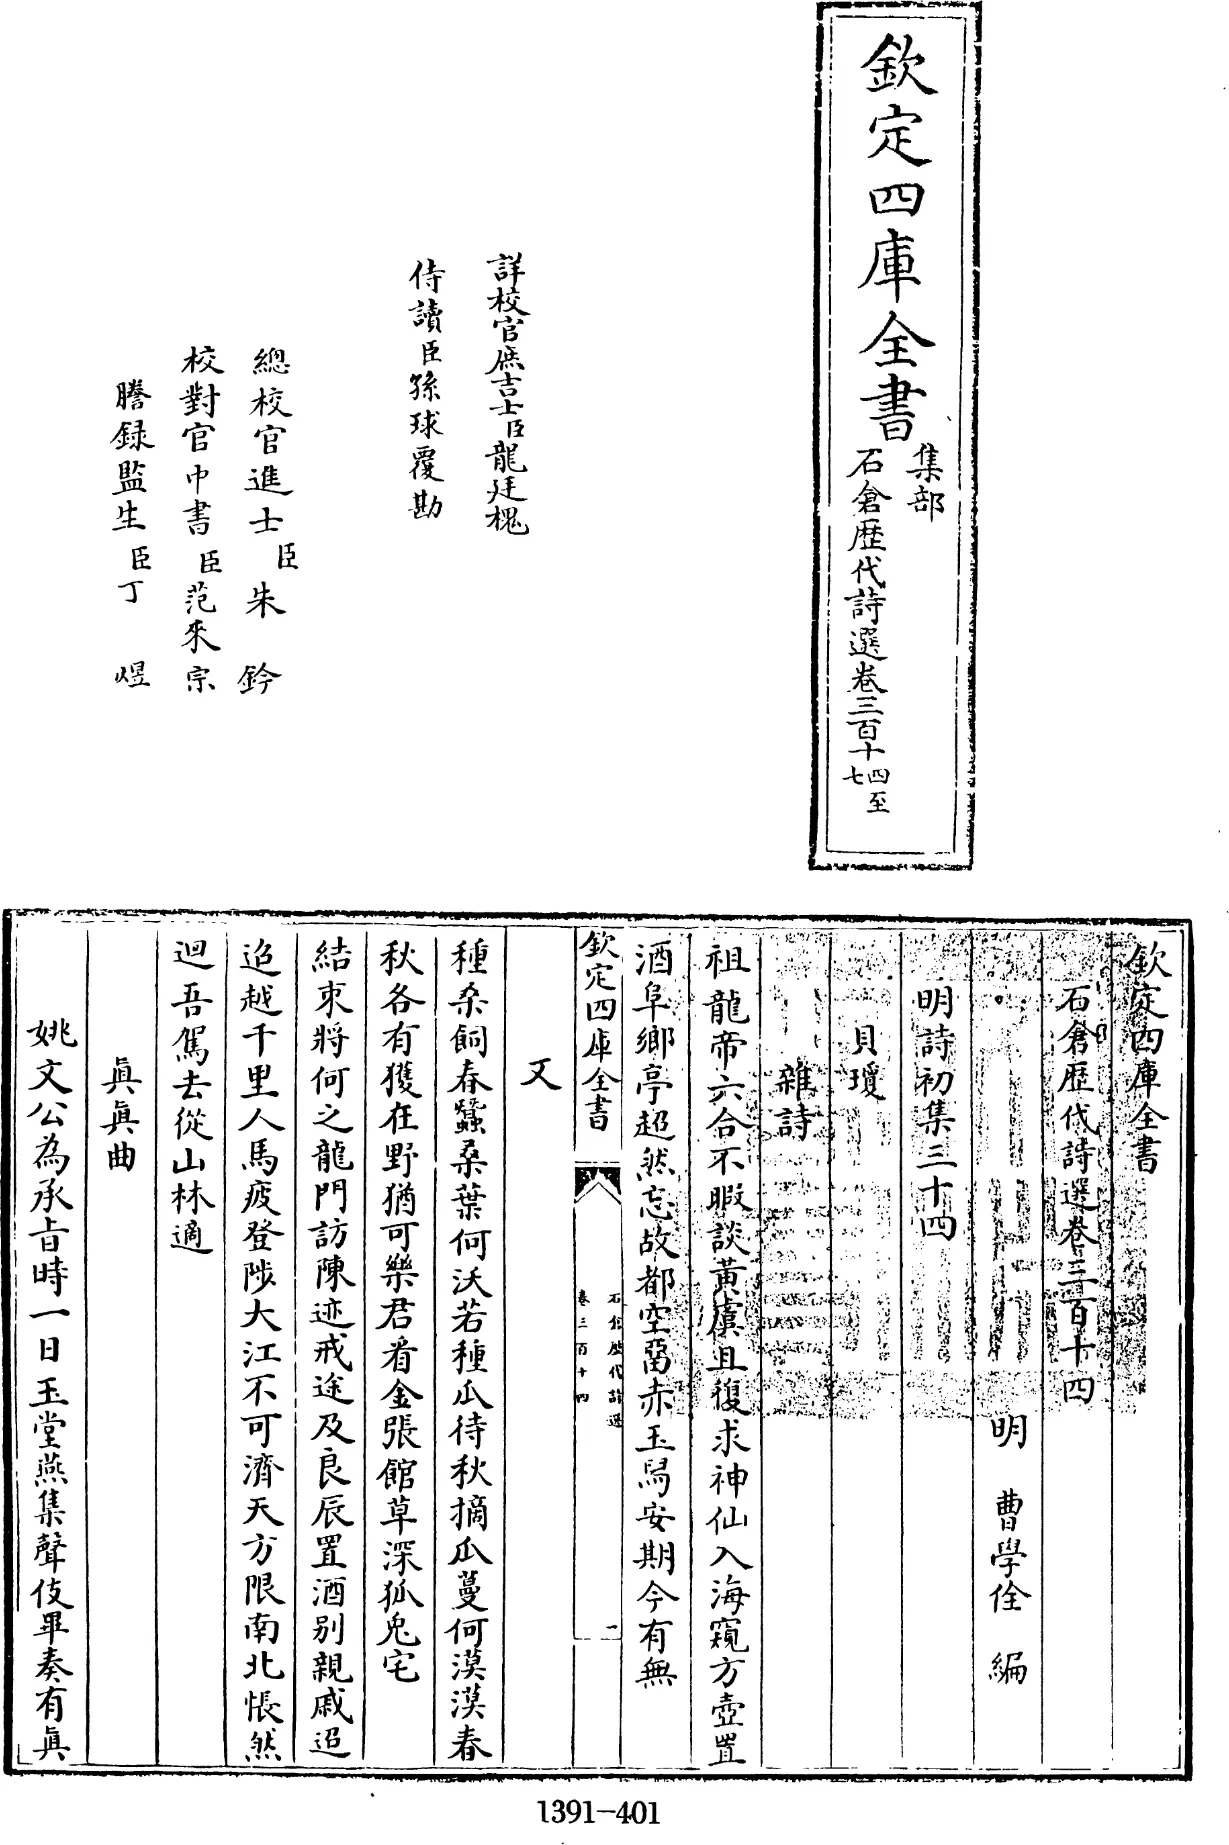 欽定四庫全書
集部
石倉歷代詩選卷三百十四至七
詳校官庶吉士臣龍廷槐
侍讀臣孫球覆勘
總校官進士臣朱鈐
校對官中書臣范來宗
謄錄監生臣丁煜
欽定四庫全書
石倉歷代詩選卷三百十四
明 曹學佺 編
明詩初集三十四
貝瓊
雜詩
祖龍帝六合不暇談黃虞且復求神仙入海窺方壺置
酒阜鄉亭超然忘故都空留赤玉舄安期今有無
欽定四庫全書
石倉歷代詩選
卷三百十四
一
又
種桑飼春蠶桑葉何沃若種瓜待秋摘瓜蔓何漠漠春
秋各有獲在野猶可樂君看金張館草深狐兔宅
結束將何之龍門訪陳迹戒途及良辰置酒別親戚迢
迢越千里人馬疲登陟大江不可濟天方限南北悵然
迴吾駕去從山林適
眞眞曲
姚文公為承旨時一日玉堂燕集聲伎畢奏有眞
1391-401